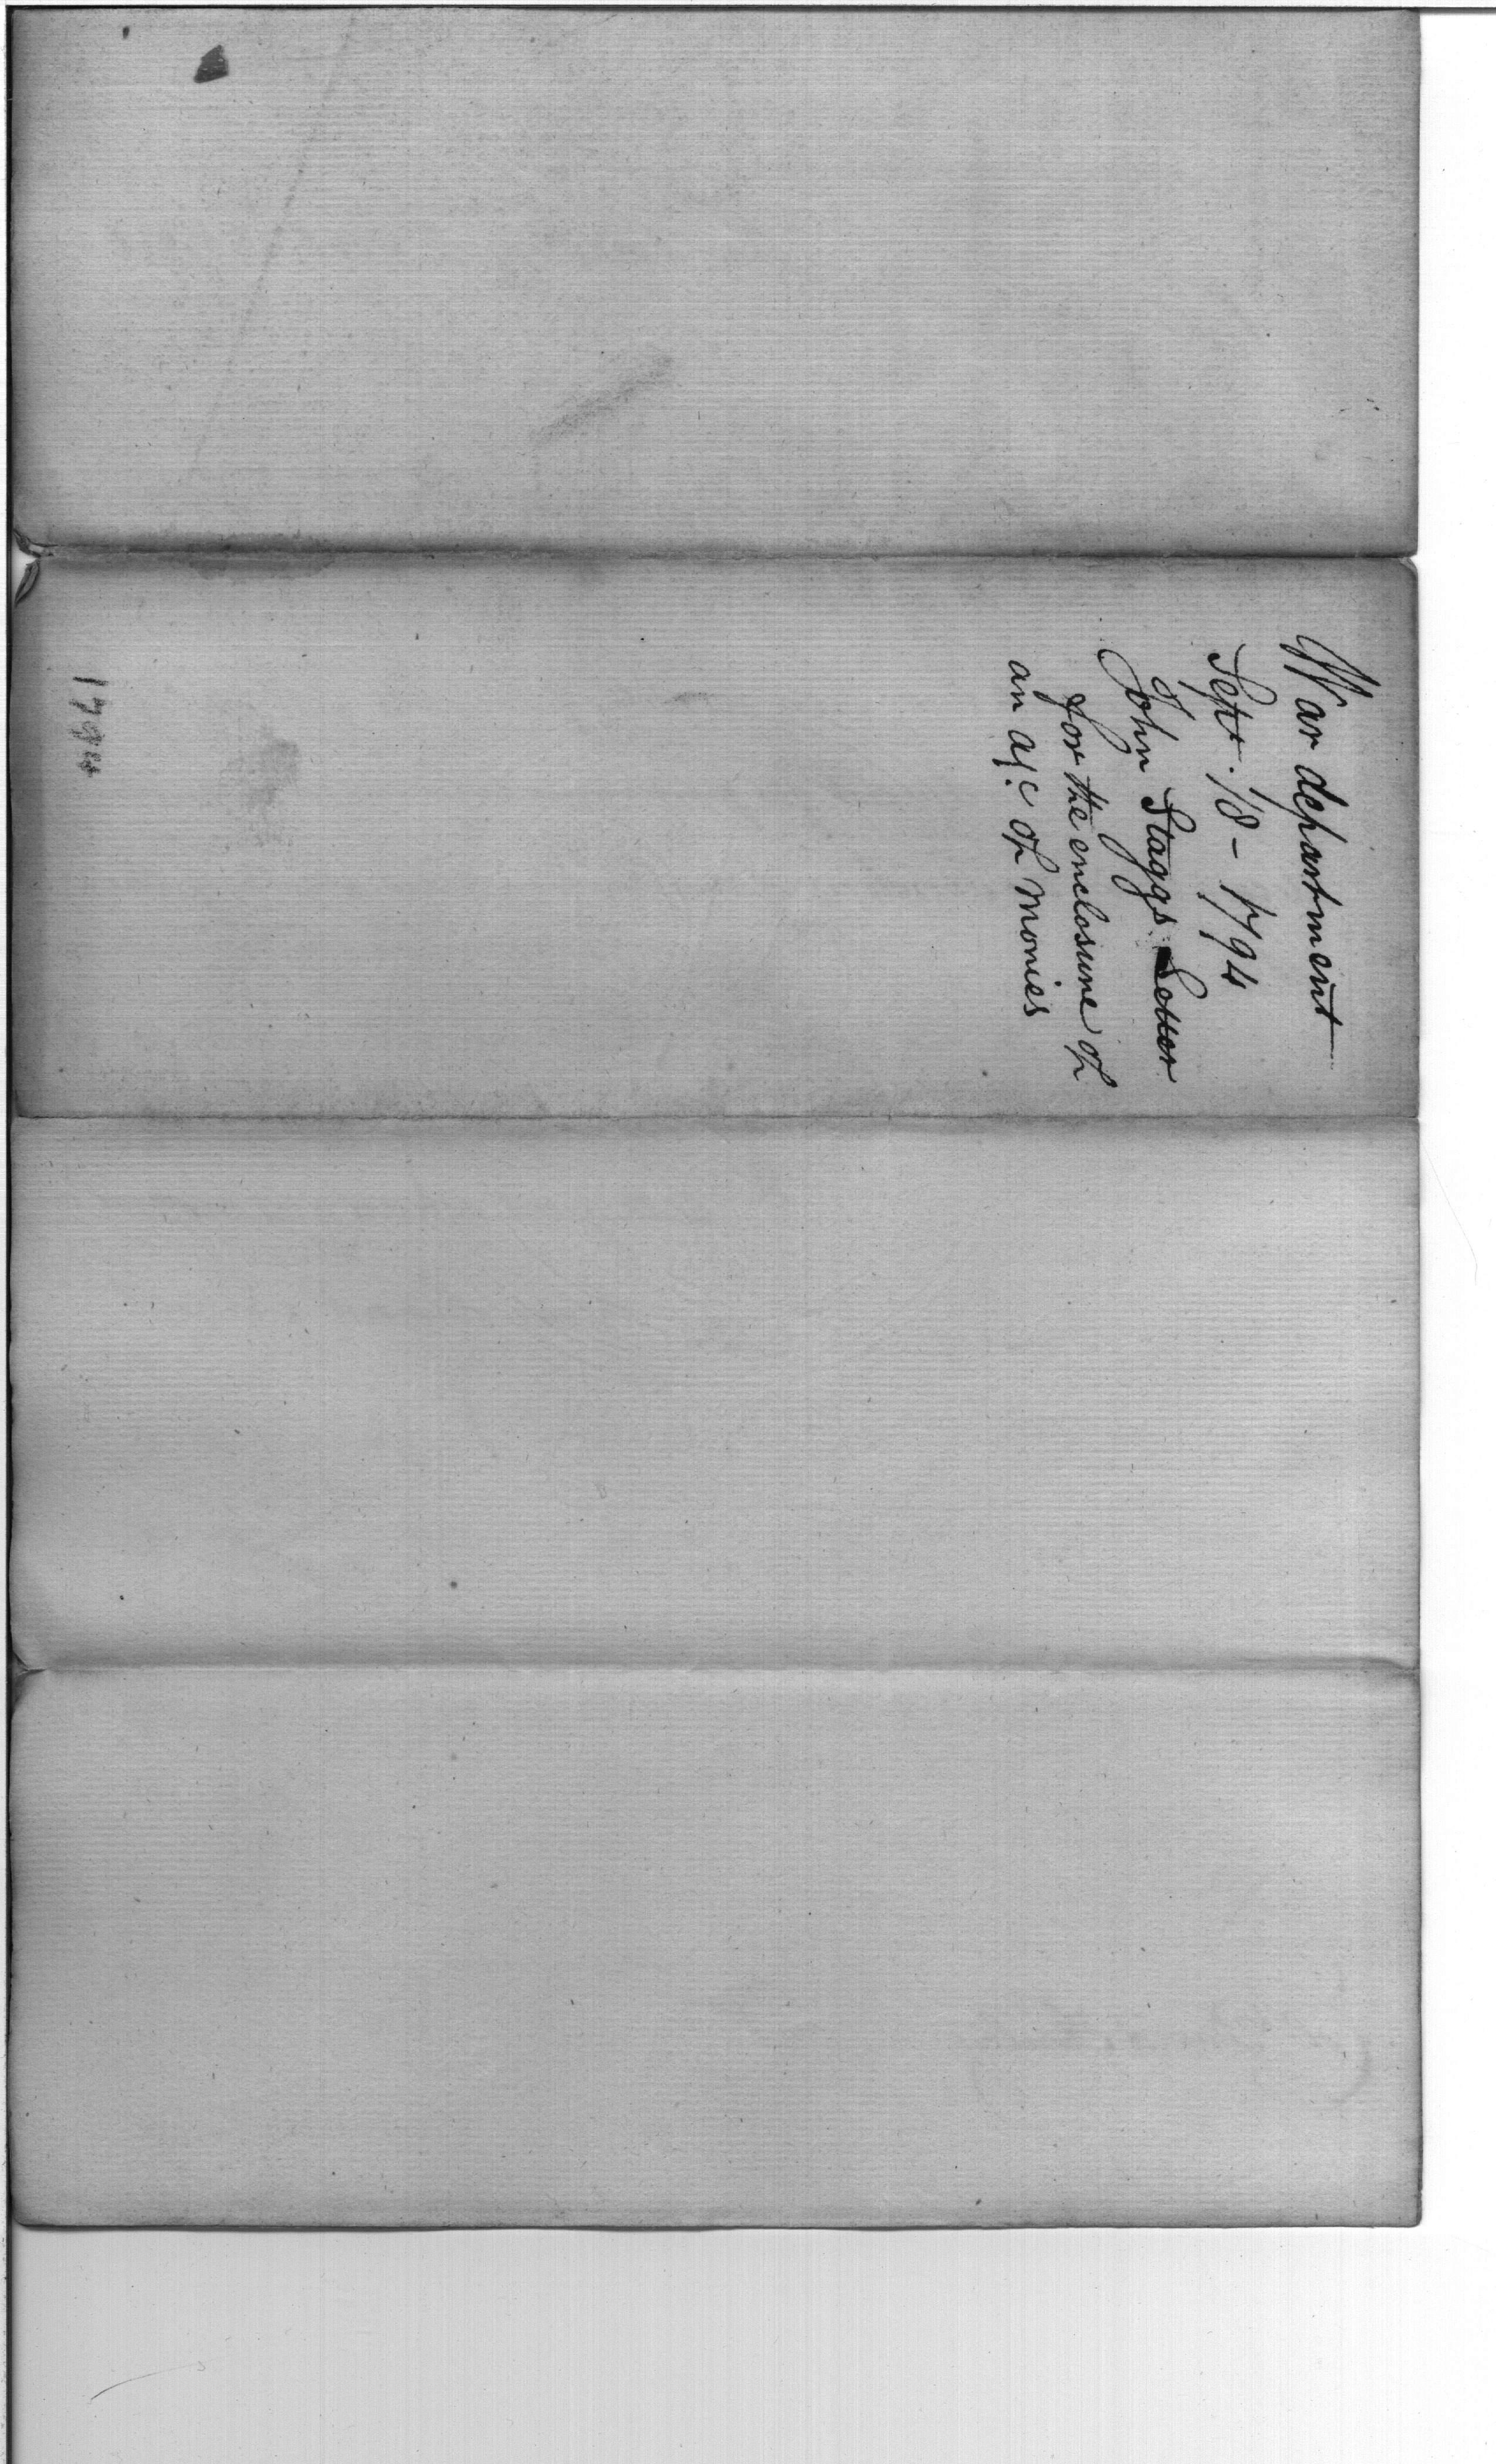 War department
Sept. 18 - 1794
John Staggs Letter
for the enclosure of
an a/c of monies
1794